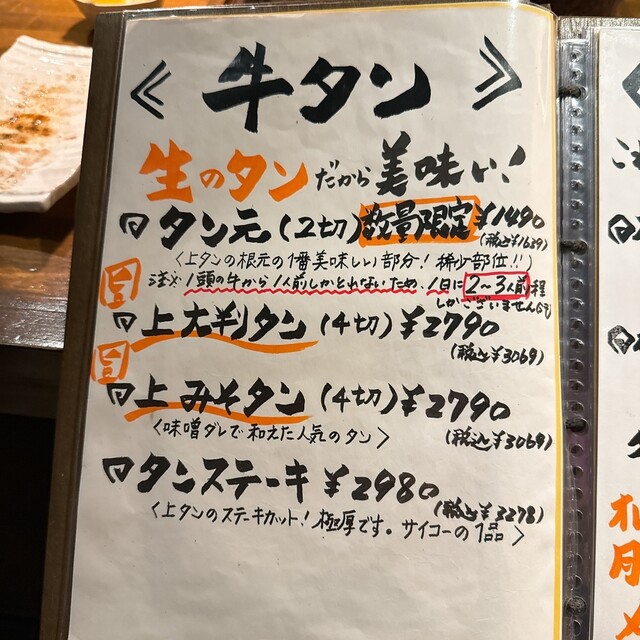 ≪ 牛タン ≫
生のタンだから美味い!
タン元(2切)数量限定¥1490
(税込¥1639)
<上タンの根元の1番美味しい部分!稀少部位!!>
注※ 1頭の牛から1人前しかとれないため、1日に2〜3人前程
しかございません
上大判タン(4切)¥2790
(税込¥3069)
上みそタン(4切)¥2790
<味噌ダレで和えた人気のタン> (税込¥3069)
タンステーキ¥2980
(税込¥3278)
<上タンのステーキカット!極厚です。サイコーの1品>